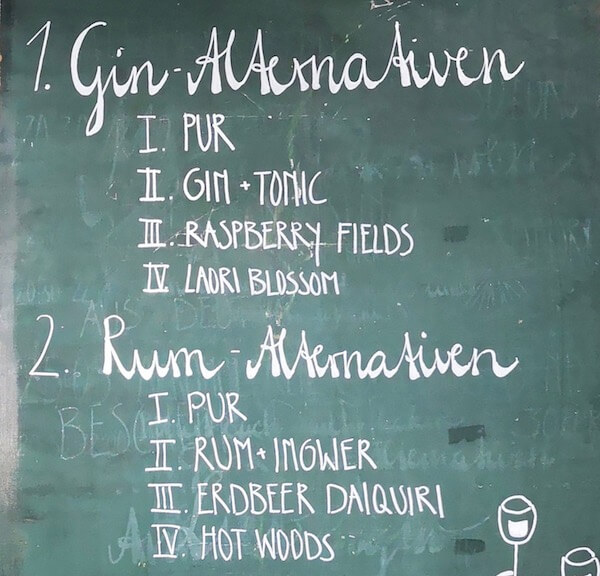 1. Gin-Alternativen
I. PUR
II. GIN + TONIC
III. RASPBERRY FIELDS
IV LAORI BLOSSOM
2. Rum-Alternativen
I. PUR
II. RUM + INGWER
III. ERDBEER DAIQUIRI
IV HOT WOODS